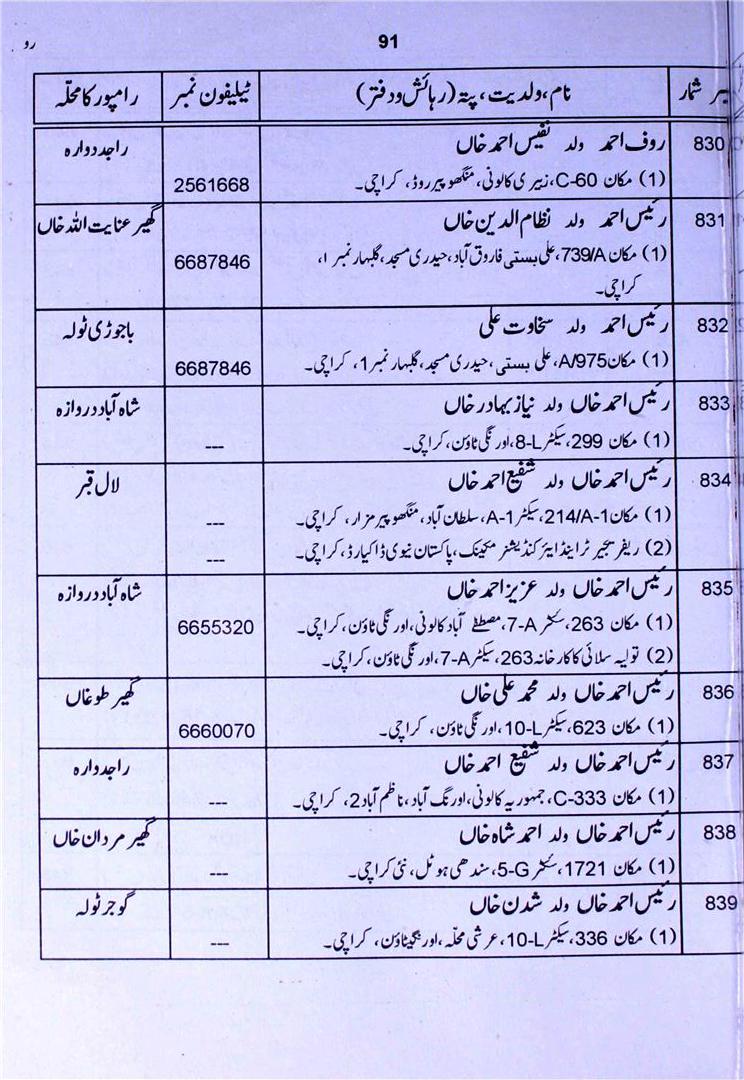 رو
91
بر شمار	نام، ولدیت، پتہ (رہائش ودفتر)	ٹیلیفون نمبر	رامپور کا محلّہ
830	روف احمد ولد نفیس احمد خاں	راجددوارہ
(1) مکان C-60، زبیری کالونی، منگھوپیر روڈ، کراچی۔	2561668
831	رئیس احمد ولد نظام الدین خاں	گھیر عنایت اللہ خاں
(1) مکان 739/A، علی بستی فاروق آباد، حیدری مسجد، گلبہار نمبر ۱،	6687846
کراچی۔
832	رئیس احمد ولد سخاوت علی	باجوڑی ٹولہ
(1) مکان A/975، علی بستی، حیدری مسجد، گلبہار نمبر 1، کراچی۔	6687846
833	رئیس احمد خاں ولد نیاز بہادر خاں	شاہ آباد دروازہ
(1) مکان 299، سیکٹر 8-L، اورنگی ٹاؤن، کراچی۔	---
834	رئیس احمد خاں ولد شفیع احمد خاں	لال قبر
(1) مکان 214/A-1، سیکٹر A-1، سلطان آباد، منگھوپیر مزار، کراچی۔	---
(2) ریفریجیر ٹر اینڈ ایئر کنڈیشنر مکینک، پاکستان نیوی ڈاکیارڈ، کراچی۔	---
835	رئیس احمد خاں ولد عزیز احمد خاں	شاہ آباد دروازہ
(1) مکان 263، سکٹر 7-A، مصطفےٰ آباد کالونی، اورنگی ٹاؤن، کراچی۔	6655320
(2) تولیہ سلائی کا کارخانہ 263، سیکٹر 7-A، اورنگی ٹاؤن، کراچی۔
836	رئیس احمد خاں ولد محمد علی خاں	گھیر طوغاں
(1) مکان 623، سیکٹر 10-L، اورنگی ٹاؤن، کراچی۔	6660070
837	رئیس احمد خاں ولد شفیع احمد خاں	راجددوارہ
(1) مکان C-333، جمہوریہ کالونی، اورنگ آباد، ناظم آباد 2، کراچی۔	---
838	رئیس احمد خاں ولد احمد شاہ خاں	گھیر مردان خاں
(1) مکان 1721، سکٹر 5-G، سندھی ہوٹل، نئی کراچی۔	---
839	رئیس احمد خاں ولد شدن خاں	گوجر ٹولہ
(1) مکان 336، سیکٹر 10-L، عرشی محلّہ، اورنگیٹاؤن، کراچی۔	---